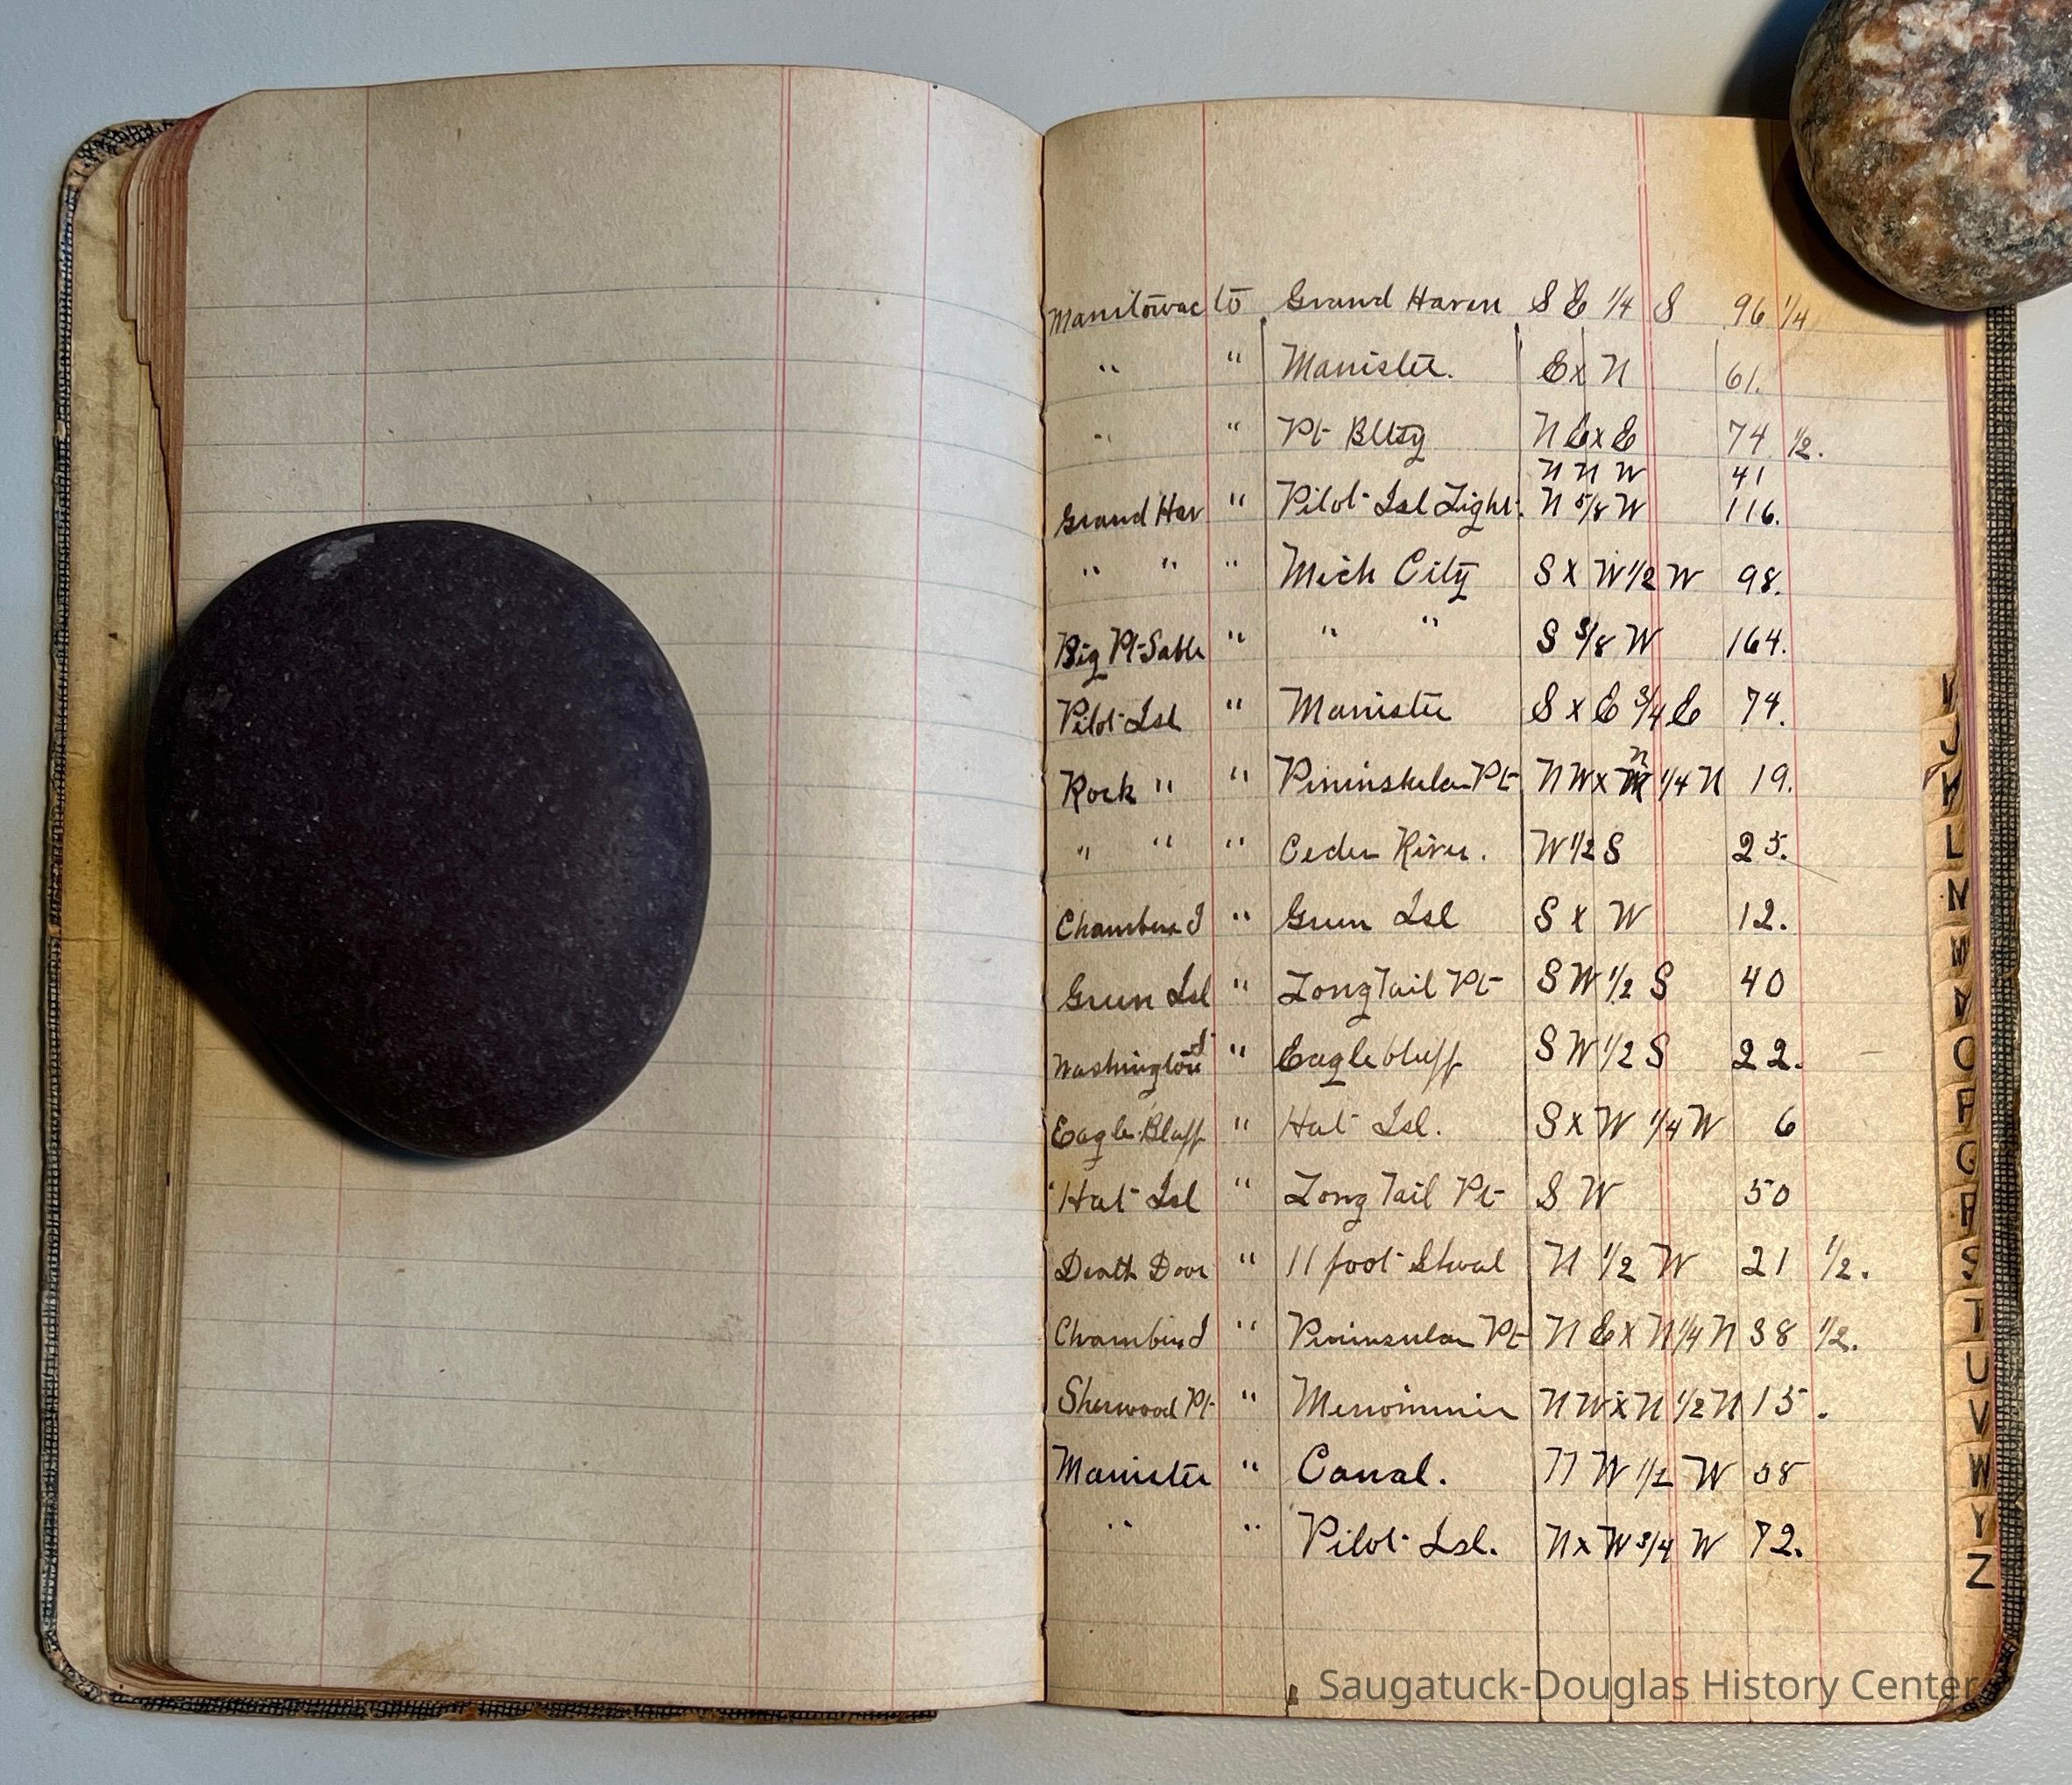 Manitowac to Grand Haven S E 1/4 S 96 1/4
" " Manistee. E x N 61.
" " Pt Bttsy N E x E 74 1/2.
N N W 41
Grand Hav " Pilot Isl Light. N 5/8 W 116.
" " " Mich City S x W 1/2 W 98.
Big Pt Sable " " " S 3/8 W 164.
Pilot Isl " Manistee S x E 3/4 E 74.
Rock " " Pininskula Pt N W x N 1/4 N 19.
" " " Ceder River. W 1/2 S 25.
Chambers I " Green Isl S x W 12.
Green Isl " Long Tail Pt S W 1/2 S 40
Washington I " Eagle bluff S W 1/2 S 22.
Eagle Bluff " Hat Isl. S x W 1/4 W 6
Hat Isl " Long Tail Pt S W 50
Death Door " 11 foot Shoal N 1/2 W 21 1/2.
Chambers I " Pininsula Pt N E x N 1/4 N 38 1/2.
Sherwood Pt " Menominie N W x N 1/2 N 15.
Manistee " Canal. N W 1/2 W 58
" " Pilot Isl. N x W 3/4 W 72.
L
N
O
P
Q
R
S
T
U
V
W
Y
Z
Saugatuck-Douglas History Center